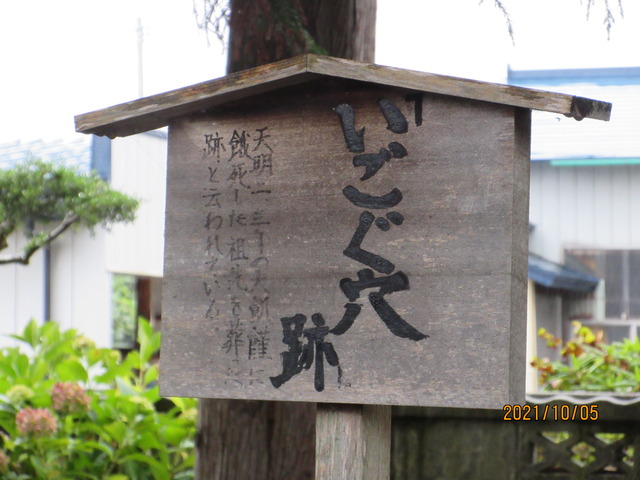 「いごぐ穴
跡」
天明二三年の大飢饉に
餓死した祖先を葬
跡と云われている。
2021/10/05